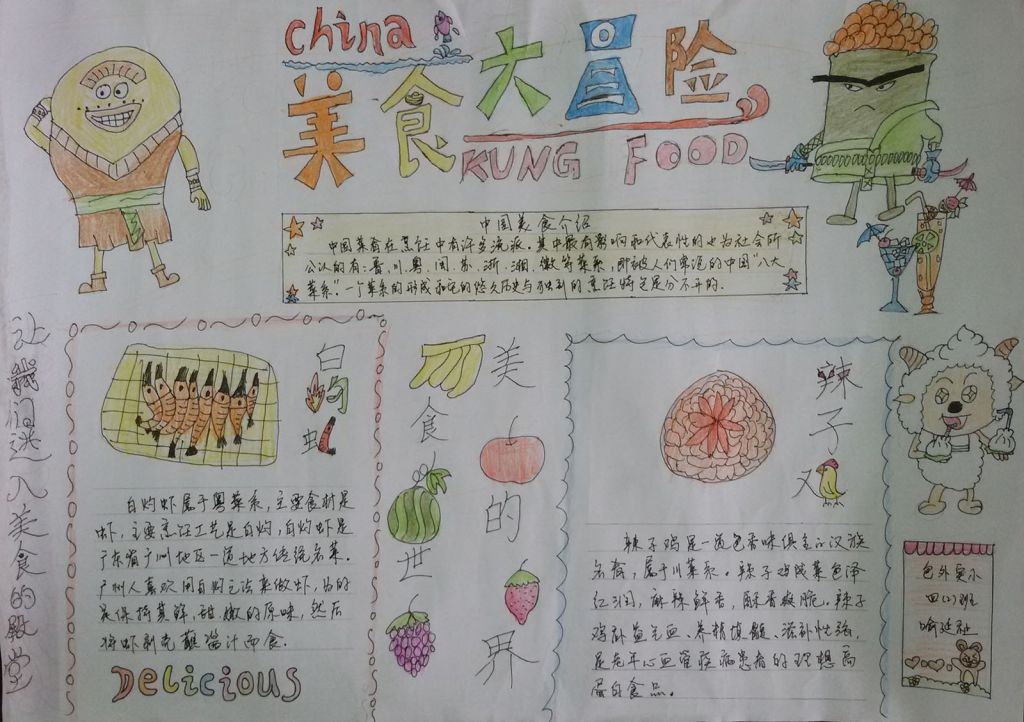 china
美食大冒险
KUNG FOOD
中国美食介绍
中国菜肴在烹饪中有许多流派。其中最有影响和代表性的也为社会所
公认的有:鲁、川、粤、闽、苏、浙、湘、徽等菜系,即被人们常说的中国“八大
菜系”。一个菜系的形成和它的悠久历史与独到的烹饪特色是分不开的。
让我们进入美食的殿堂
白灼虾
白灼虾属于粤菜系,主要食材是
虾,主要烹饪工艺是白灼,白灼虾是
广东省广州地区一道地方传统名菜。
广州人喜欢用白灼之法来做虾,为的
是保持其鲜、甜、嫩的原味,然后
将虾剥壳蘸酱汁而食。
Delicious
美食的世界
辣子又
辣子鸡是一道色香味俱全的汉族
名肴,属于川菜系。辣子鸡成菜色泽
红润,麻辣鲜香,酥香爽脆。辣子
鸡补益气血、养精填髓、滋补性强,
是老年心血管疾病患者的理想高
蛋白食品。
包外实小
四(1)班
喻延祉